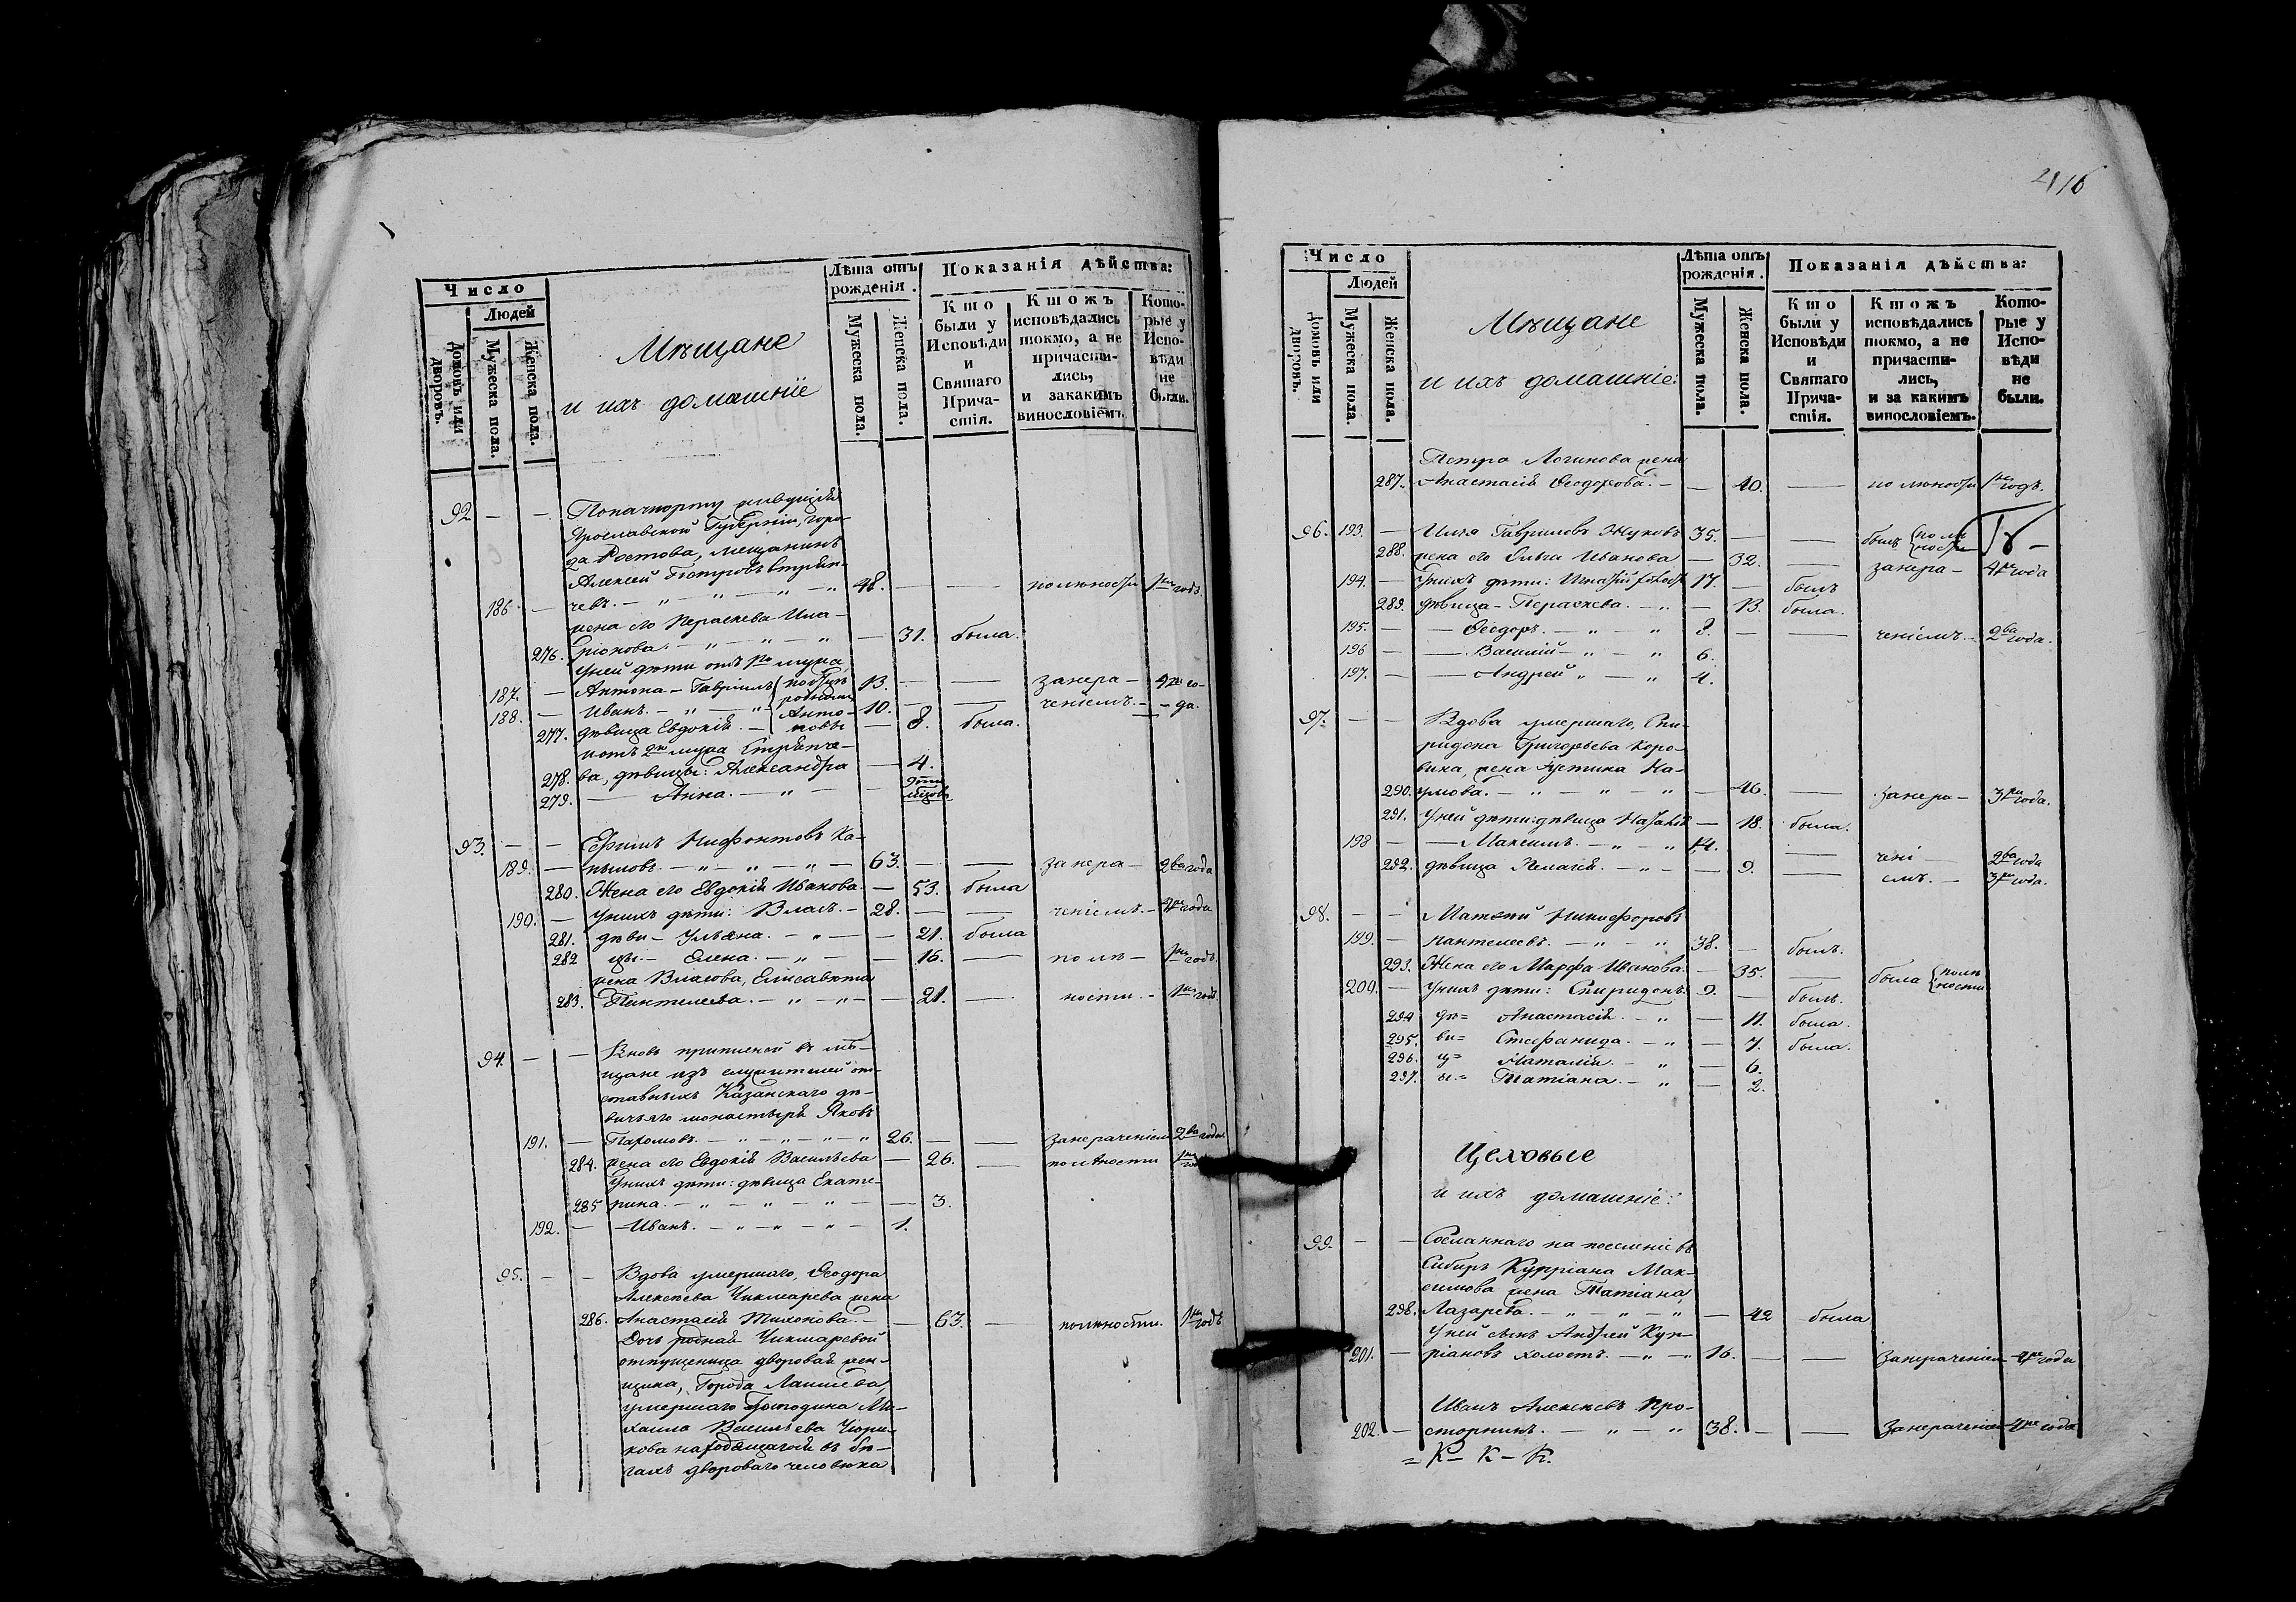 Число
Людей
Домовъ или дворовъ.
Мужеска пола.
Женска пола.
Мѣщане
и ихъ домашніе
Лѣта отъ рожденія.
Мужеска пола.
Женска пола.
Показанія дѣйства:
Кто были у Исповѣди и Святаго Причастія.
Ктожъ исповѣдались токмо, а не причастились, и закакимъ винословіемъ.
Которые у Исповѣди не были.
92 — — Попачпорту живущій
Ярославской Губерніи, горо-
да Ростова, мещанинъ
Алексей Петровъ Стряп-
186. — чевъ. — „ — „ — „ — „ 48. — — полености 1 годъ.
жена его Параскева Ила-
276. ріонова. — „ — „ — „ — 31. была.
Уней дѣти отъ 1го мужа
187. — Антона — Гавріилъ 13. — — занера- 4ре го-
188. — Иванъ. — „ — „ 10. — — ченіемъ. — да.
277. дѣвица Евдокія. — — 8. была.
Антоновы
иотъ 2го мужа Стряпче-
278. ва, дѣвицы: Александра — 4.
279. — Анна. — „ — —
93. — — Ефимъ Нифонтовъ Ка-
189. — пыловъ. — „ — „ — „ — 63. — — занера- 2ва года
280. Жена его Евдокія Иванова. — 53. была
190. — Унихъ дѣти: Власъ. — 28. — — ченіемъ. — 4ре года
281. дѣви- Ульяна. — „ — — 21. была
282 цы. — Елена. — „ — — 16. — полѣ- 1 годъ.
жена Власова, Елисавета
283. Пантелеева. — „ — „ — — 21. — ности. — 1 годъ.
94. — — Вновь приписной въ мѣ-
щане изъ служителей от-
ставныхъ Казанскаго дѣ-
вичьяго монастыря Яковъ
191. — Пахомовъ. — „ — „ — „ — „ 26. — — занераченіемъ 2ва года.
284. жена его Евдокія Васильева — 26. — полѣности 1 годъ
Унихъ дѣти: дѣвица Екате-
285 рина. — „ — „ — „ — — 3.
192. — Иванъ. — „ — „ — „ — 1.
95. — — Вдова умершаго, Ѳеодора
Алексѣева Чикмарева жена
286. Анастасія Тихонова. — — 63. — полѣности. 1 годъ
Дочь родная Чикмаревой
отпущеница дворовая жен-
щина, Города Лаишева,
умершаго Господина Ми-
хаила Васильева
кова находящагося въ бѣ-
гахъ двороваго человѣка
416
Число
Людей
Домовъ или дворовъ.
Мужеска пола.
Женска пола.
Мѣщане
и ихъ домашніе:
Лѣта отъ рожденія.
Мужеска пола.
Женска пола.
Показанія дѣйства:
Кто были у Исповѣди и Святаго Причастія.
Ктожъ исповѣдались токмо, а не причастились, и за какимъ винословіемъ.
Которые у Исповѣди не были.
Петра Логинова жена
287. Анастасія Ѳеодорова. — — 40. — полѣности 1 годъ.
96. 193. — Илья Гавриловъ Жуковъ 35. — — былъ полѣности
288. жена его Ольга Иванова — 32. — занера- 4ре года
194. — Унихъ дѣти: Игнатій холостъ 17. — былъ
289. дѣвица — Параскева. — „ — 13. была.
195. — — Ѳеодоръ. — „ — „ 8. — — ченіемъ. — 2ва года.
196 — — Василій — „ — „ 6.
197. — — Андрей „ — „ 4.
97. — — Вдова умершаго, Спи-
ридона Григорьева Коро-
вина, жена Устина На-
290. умова. — „ — „ — „ — 46. — занера- 3ри года.
291. Уней дѣти: дѣвица Наталія — 18. была.
198 — — Максимъ. — „ — „ 14. — чені- 2ва года
292. дѣвица Пелагія. — „ — — 9. — емъ. — 3ри года.
98. — — Матвей Никифоровъ
199. — Пантелеевъ. — „ — „ 38. — былъ.
293. Жена его Марфа Иванова. — 35. — была полѣности
200. — Унихъ дѣти: Спиридонъ. 9. — былъ.
294 дѣ= Анастасія. — „ — 11. была.
295. ви= Стефанида. — „ — 7. была.
296. ц= Наталія. — „ — 6.
297. ы.= Татіана. — „ — 2.
Цеховые
и ихъ домашніе:
99. — — Сосланнаго на поселеніе въ
Сибирь Купріана Мак-
симова жена Татіана
298. Лазарева. — „ — „ — „ — 42 была
Уней сынъ Андрей Куп-
201. — ріановъ холостъ. — „ — „ 16. — — Занераченіемъ 4ре года
Иванъ Алексѣевъ Про-
202. — сторнинъ. — „ — „ 38. — — Занераченіемъ 4ре года
= К — К — К.